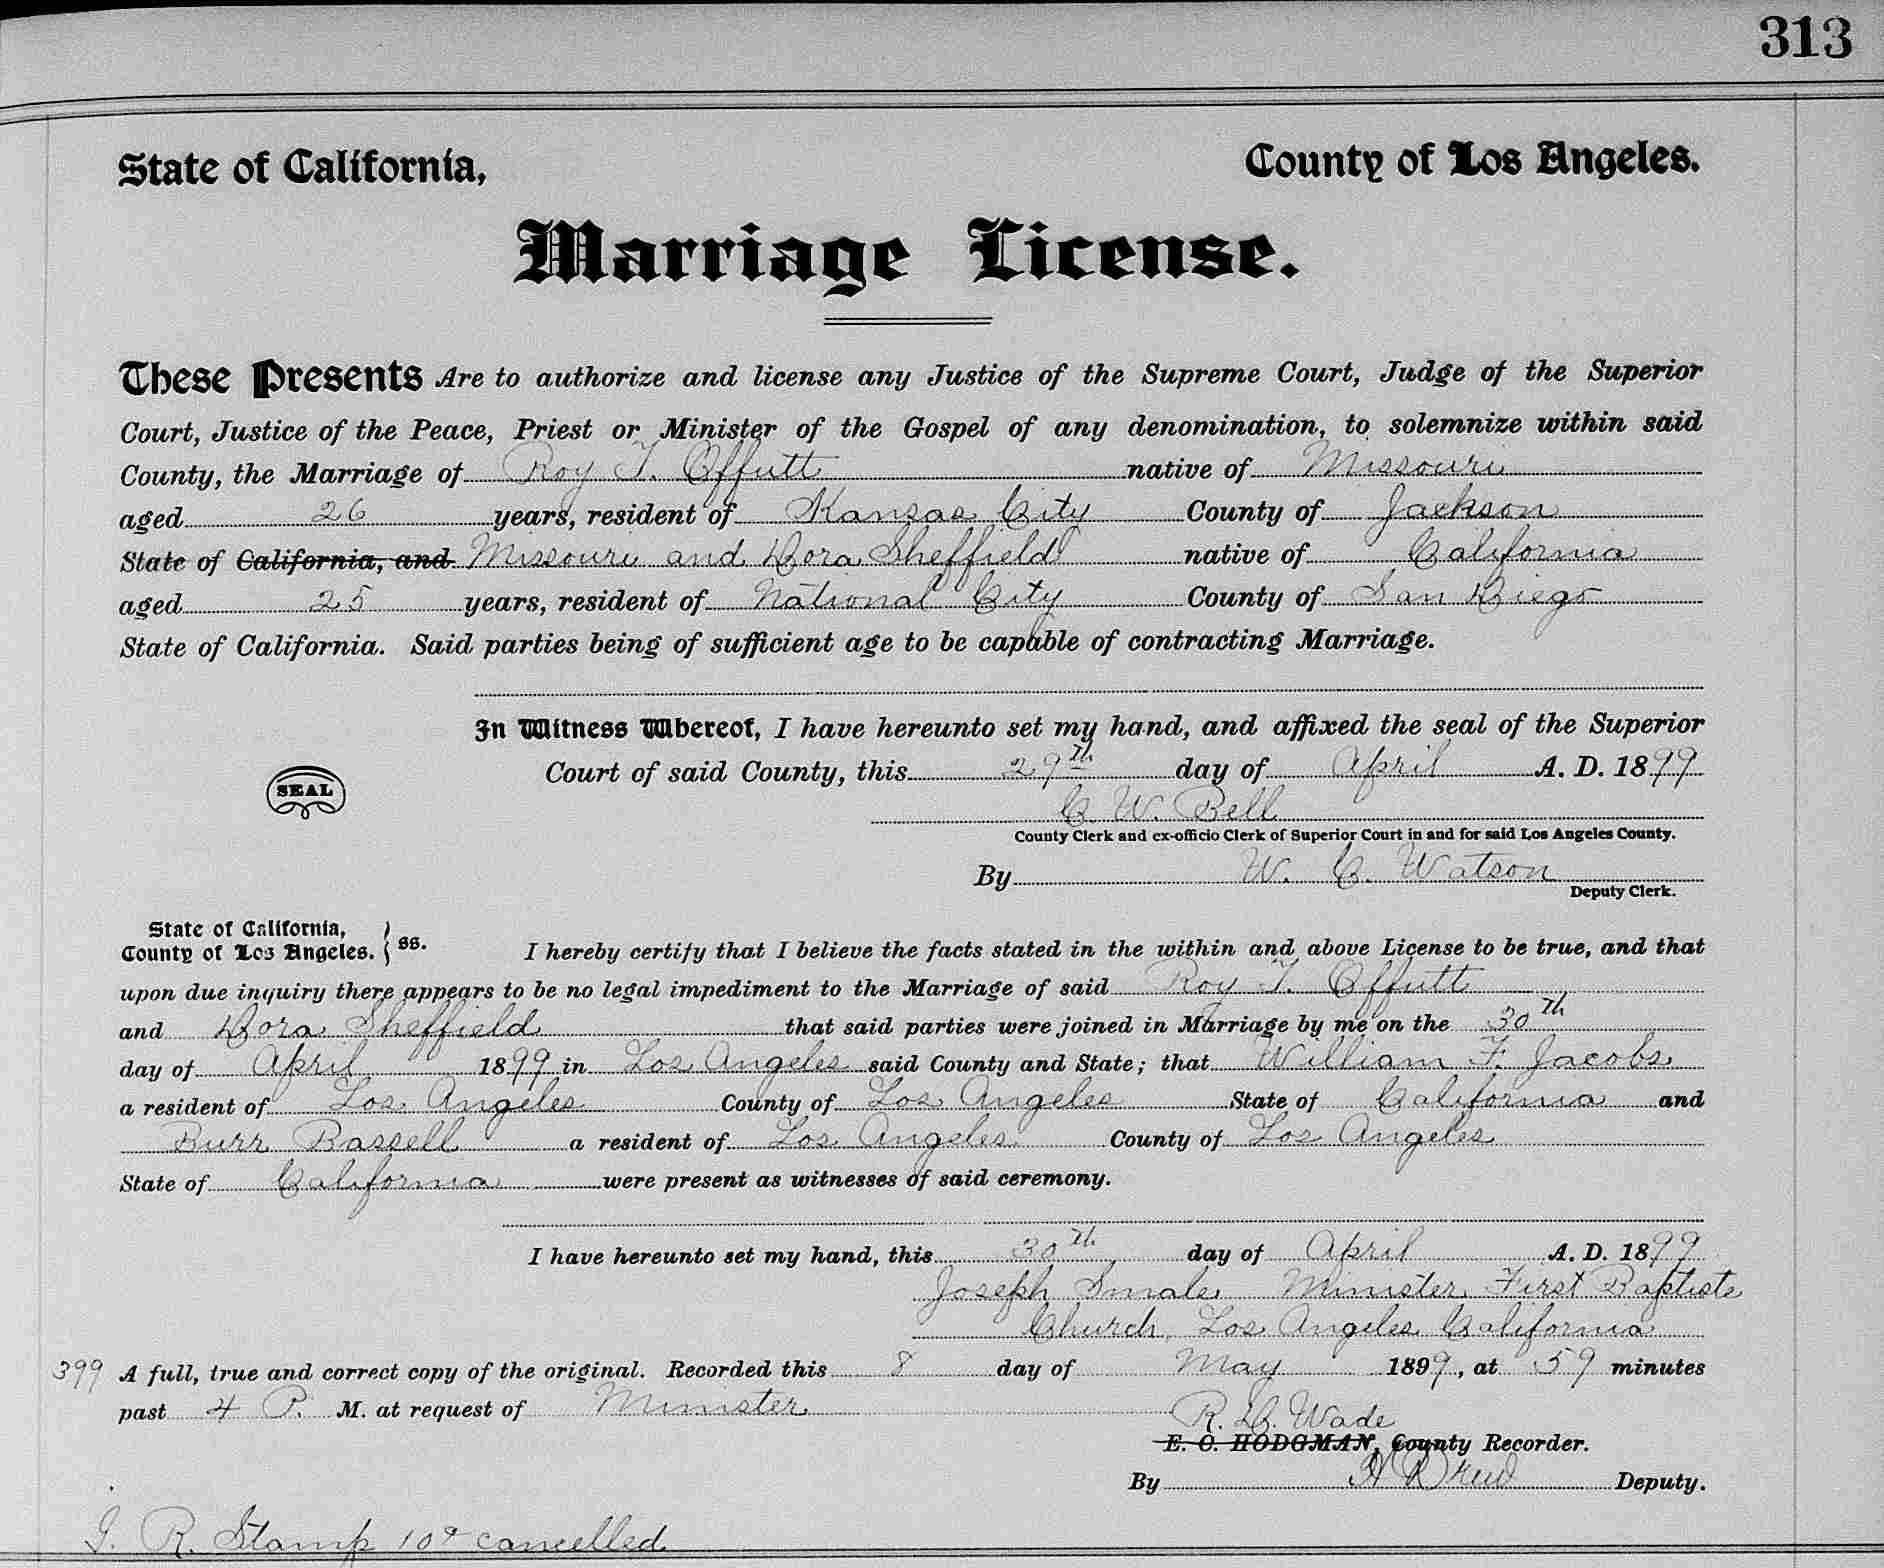 313
State of California, County of Los Angeles.
Marriage License.
These Presents Are to authorize and license any Justice of the Supreme Court, Judge of the Superior
Court, Justice of the Peace, Priest or Minister of the Gospel of any denomination, to solemnize within said
County, the Marriage of Roy T. Offutt native of Missouri
aged 26 years, resident of Kansas City County of Jackson
State of California, and Missouri and Dora Sheffield native of California
aged 25 years, resident of National City County of San Diego
State of California. Said parties being of sufficient age to be capable of contracting Marriage.
In Witness Whereof, I have hereunto set my hand, and affixed the seal of the Superior
Court of said County, this 29th day of April A. D. 1899
SEAL
C. W. Bell
County Clerk and ex-officio Clerk of Superior Court in and for said Los Angeles County.
By W. C. Watson
Deputy Clerk.
State of California,
County of Los Angeles. } ss. I hereby certify that I believe the facts stated in the within and above License to be true, and that
upon due inquiry there appears to be no legal impediment to the Marriage of said Roy T. Offutt
and Dora Sheffield that said parties were joined in Marriage by me on the 30th
day of April 1899 in Los Angeles said County and State; that William F. Jacobs
a resident of Los Angeles County of Los Angeles State of California and
Burr Bassell a resident of Los Angeles County of Los Angeles
State of California were present as witnesses of said ceremony.
I have hereunto set my hand, this 30th day of April A. D. 1899
Joseph Smale Minister First Baptist
Church, Los Angeles California
399 A full, true and correct copy of the original. Recorded this 8 day of May 1899, at 59 minutes
past 4 P. M. at request of Minister
R. D. Wade
E. C. HODGMAN, County Recorder.
By Deputy.
I. R. Stamp 10¢ cancelled